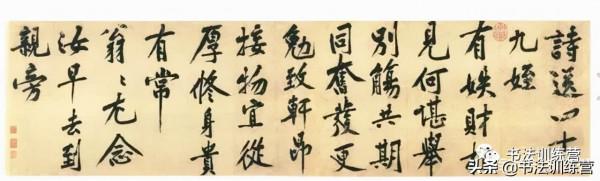 詩送四十
九姪
有妷財相
見何堪舉
別觴共期
同奮發更
勉致軒昂
接物宜從
厚修身貴
有常
翁〻尤念
汝早去到
親旁
书法训练营
头条 @书法训练营